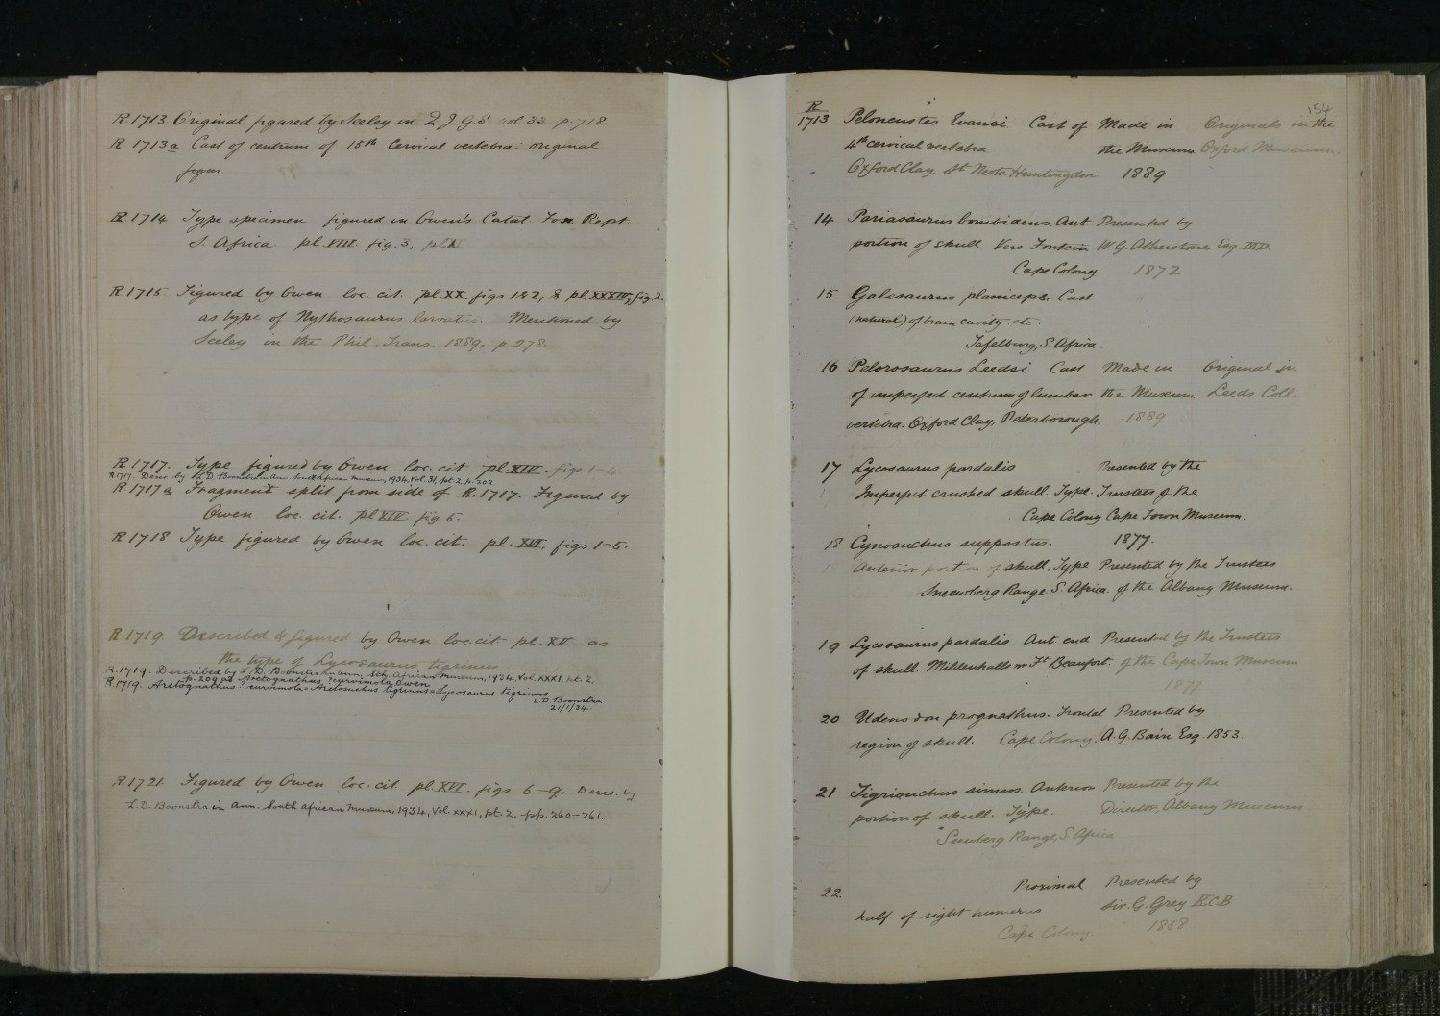 R 1713. Original figured by Seeley in Q.J.G.S vol 33 p. 718
R 1713a Cast of centrum of 15th Cervical vertebra: original
figured
R 1714 Type specimen figured in Owen's Catal. Foss. Rept.
S. Africa pl. VIII. fig. 3.
R 1715. Figured by Owen loc. cit. pl. XX. figs 1 & 2, & pl. XXXIV, fig. 2.
as type of Nythosaurus larvatus. Mentioned by
Seeley in the Phil. Trans. 1889. p 278.
R 1717. Type figured by Owen loc. cit pl. XIV. figs 1-4.
R.1717. Descr. by L.D. Boonstra Ann. South African Museum, 1934, Vol. 31, pt. 2, p. 202.
R 1717a Fragment split from side of R. 1717. Figured by
Owen loc. cit. pl XIV. fig 5.
R 1718 Type figured by Owen loc. cit. pl. XVI. figs 1-5.
R 1719. Described & figured by Owen loc. cit pl. XV as
the type of Lycosaurus tigrinus
R.1719. Described by L.D. Boonstra in Ann. Sth. African Museum, 1934, Vol. XXXI, pt. 2.
p. 209 as Arctognathus curvimola Owen
R.1719. Arctognathus curvimola = Arctosuchus tigrinus = Lycosaurus tigrinus
L.D. Boonstra
21/1/34.
R 1721. Figured by Owen loc. cit. pl. XVI. figs 6-9. Descr. by
L.D. Boonstra in Ann. South African Museum, 1934, Vol. XXXI, pt. 2. pp. 260-261.
154
R
1713 Peloneustes Evansi. Cast of Made in Originals in the
4th cervical vertebra the Museum Oxford Museum.
Oxford Clay. St Neots Huntingdon 1889
14 Pariasaurus bombidens. Ant. Presented by
portion of skull Vers Fontein W.G. Atherstone Esq. M.D.
Cape Colony 1872
15 Galesaurus planiceps. Cast
(natural) of brain cavity etc.
Tafelburg, S. Africa.
16 Pelorosaurus Leedsi Cast Made in Original in
of imperfect centrum of lumbar the Museum Leeds Coll.
vertebra. Oxford Clay, Peterborough 1889
17 Lycosaurus pardalis Presented by the
Imperfect crushed skull. Type. Trustees of the
Cape Colony Cape Town Museum.
18 Cynosuchus suppostus. 1877.
Anterior portion of skull. Type Presented by the Trustees
Sneeuwberg Range S. Africa. of the Albany Museum.
19 Lycosaurus pardalis Ant. end Presented by the Trustees
of skull. Mildenhalls nr Ft Beaufort. of the Cape Town Museum
1877
20 Udenodon prognathus. Frontal Presented by
region of skull. Cape Colony. A.G. Bain Esq. 1853.
21 Tigrisuchus simus. Anterior Presented by the
portion of skull. Type. Director, Albany Museum
Sneuberg Range, S. Africa
22. Proximal Presented by
half of right humerus Sir. G. Grey KCB
Cape Colony. 1858